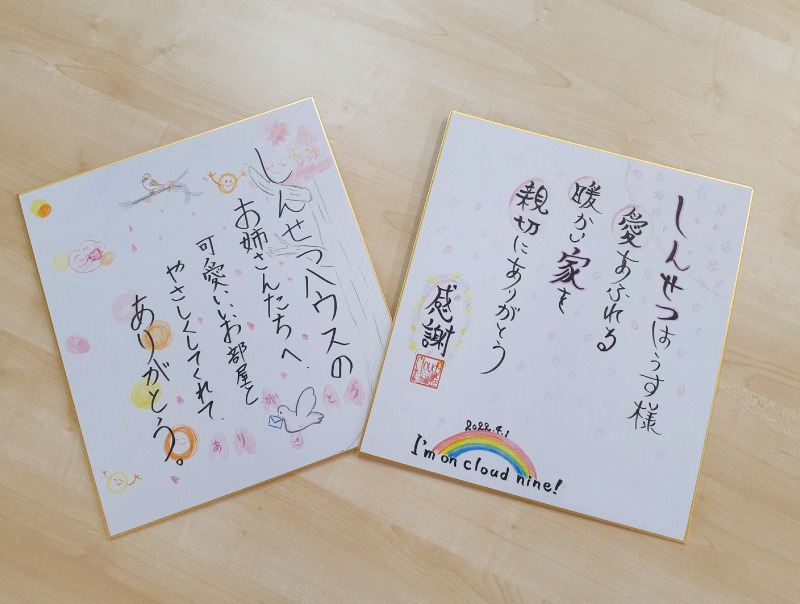 しんせつハウスの
お姉さんたちへ.
可愛いいお部屋と
やさしくしてくれて.
ありがとう。
ありがとう
しんせつはうす様
愛あふれる
暖かい家を
親切にありがとう
感謝
2022.4.1
I'm on cloud nine!